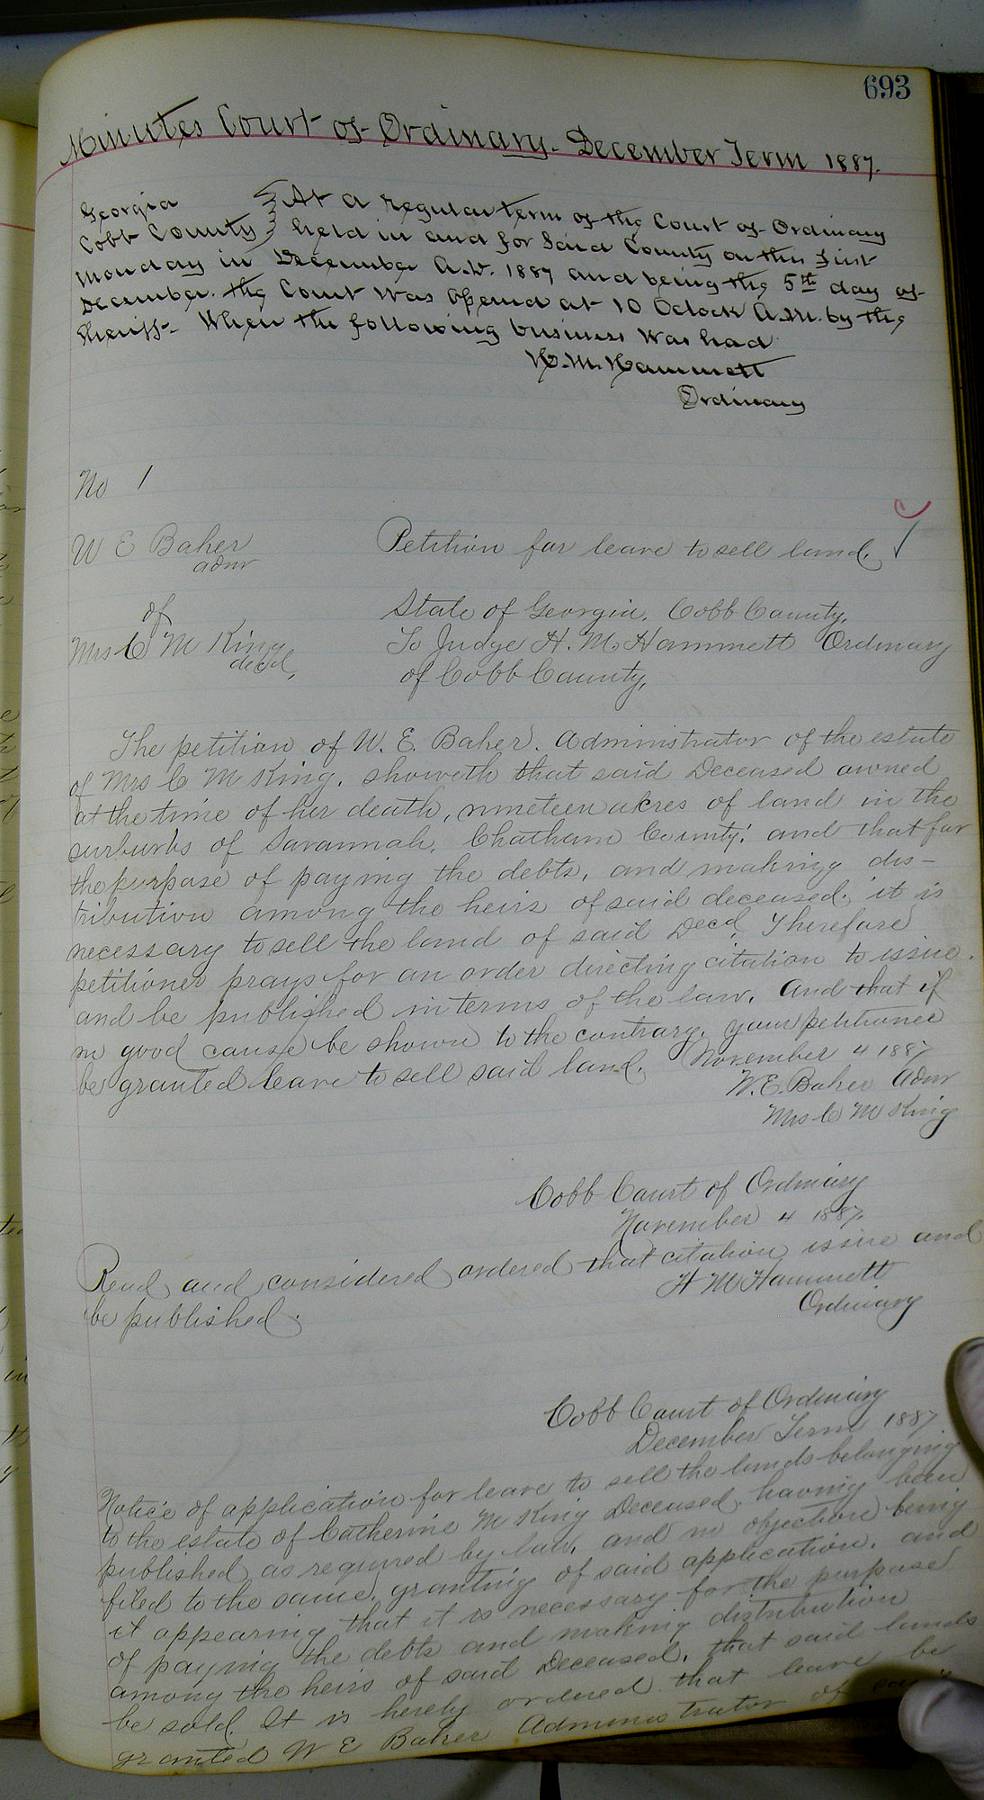 693
Minutes Court of Ordinary. December Term 1887.
Georgia } At a regular term of the Court of Ordinary
Cobb County } held in and for said County on this first
Monday in December A.D. 1887 and being the 5th day of
December. the Court was opened at 10 Oclock A.M. by the
Sheriff. When the following business was had
H. M. Hammett
Ordinary
No 1
W E Baker
admr
of
Mrs C M King
decd,
Petition for leave to sell land.
State of Georgia, Cobb County,
To Judge H. M. Hammett Ordinary
of Cobb County,
The petition of W. E. Baker. Administrator of the estate
of Mrs C M King, showeth that said Deceased owned
at the time of her death, nineteen acres of land in the
surburbs of Savannah, Chatham County, and that for
the purpose of paying the debts, and making dis-
tribution among the heirs of said deceased, it is
necessary to sell the land of said Decd. Therefore
petitioner prays for an order directing citation to issue.
and be published in terms of the law, and that if
no good cause be shown to the contrary, your petitioner
be granted leave to sell said land. November 4 1887
W. E. Baker Admr
Mrs C M King
Cobb Court of Ordinary
November 4 1887.
Read and considered ordered that citation issue and
be published.
H M Hammett
Ordinary
Cobb Court of Ordinary
December Term 1887
Notice of application for leave to sell the lands belonging
to the estate of Catherine M King Deceased, having been
published as required by law, and no objection being
filed to the same, granting of said application, and
it appearing that it is necessary for the purpose
of paying the debts and making distribution
among the heirs of said Deceased, that said lands
be sold. It is hereby ordered that leave be
granted W E Baker Administrator of